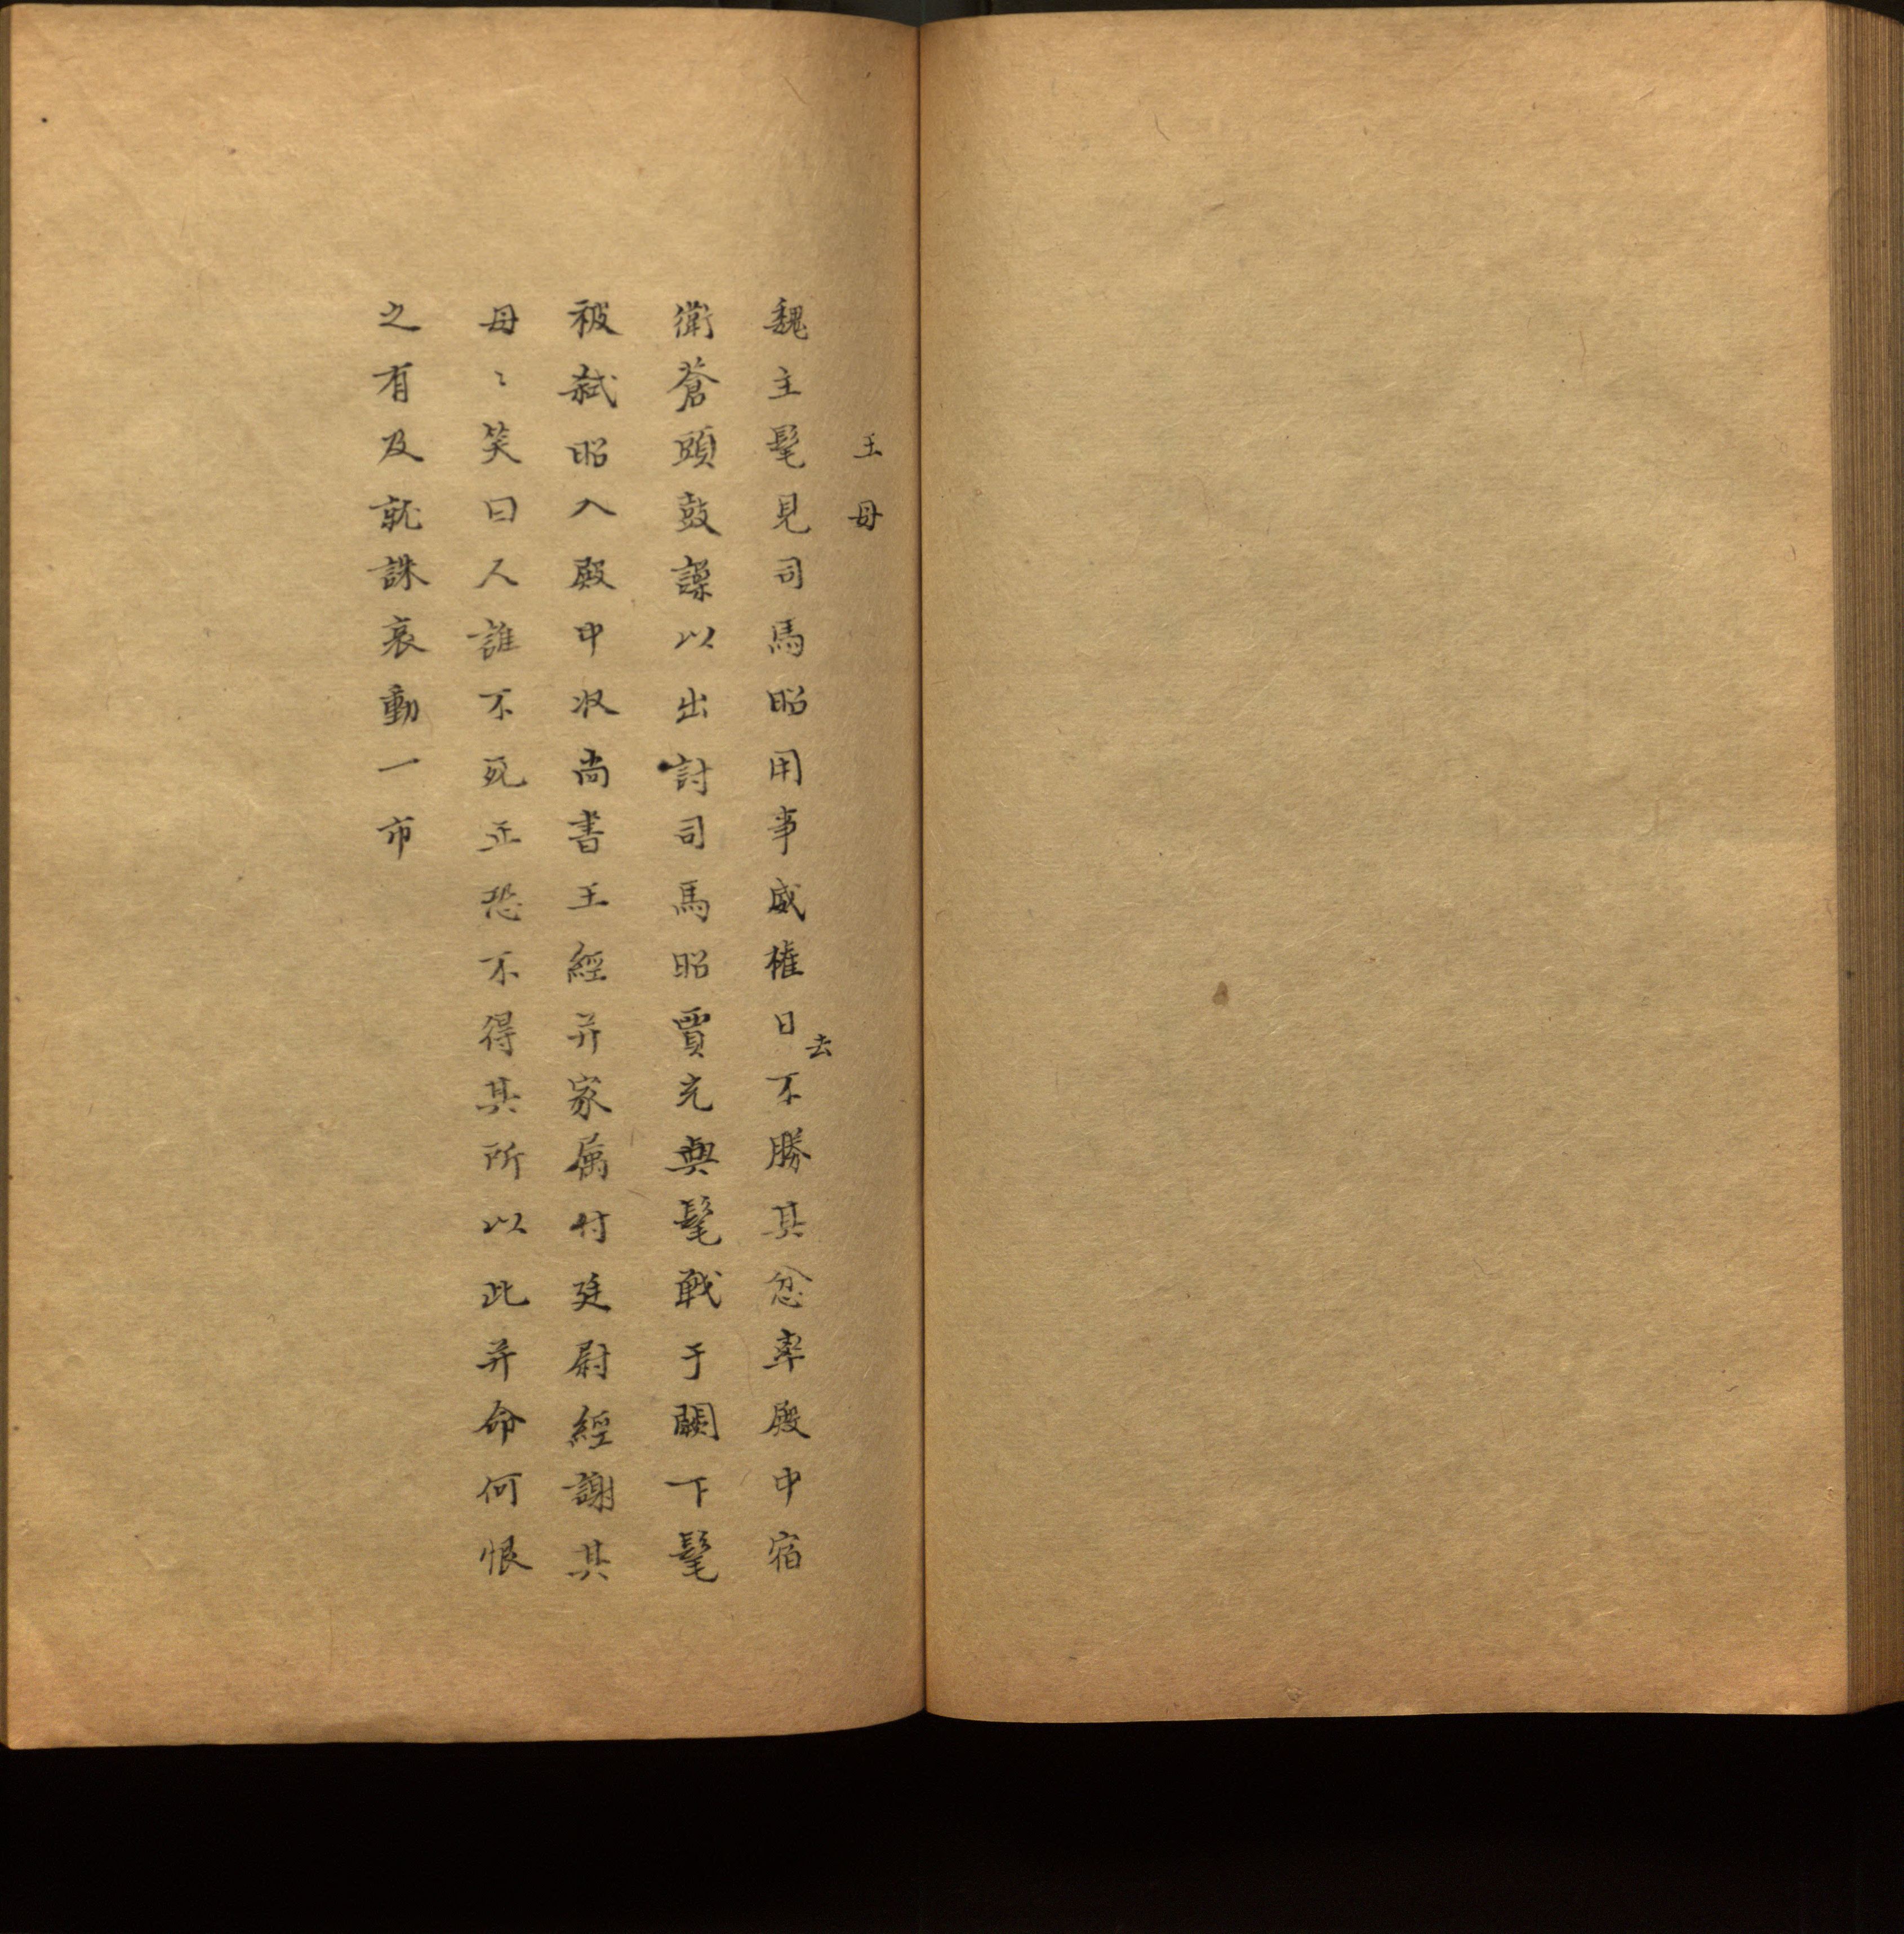 王母
魏主髦見司馬昭用事威權日去不勝其忿率殿中宿
衛蒼頭鼓譟以出討司馬昭賈充與髦戰于闕下髦
被弒昭入殿中収尚書王經并家属付廷尉經謝其
母〻笑曰人誰不死正恐不得其所以此并命何恨
之有及就誅哀動一市